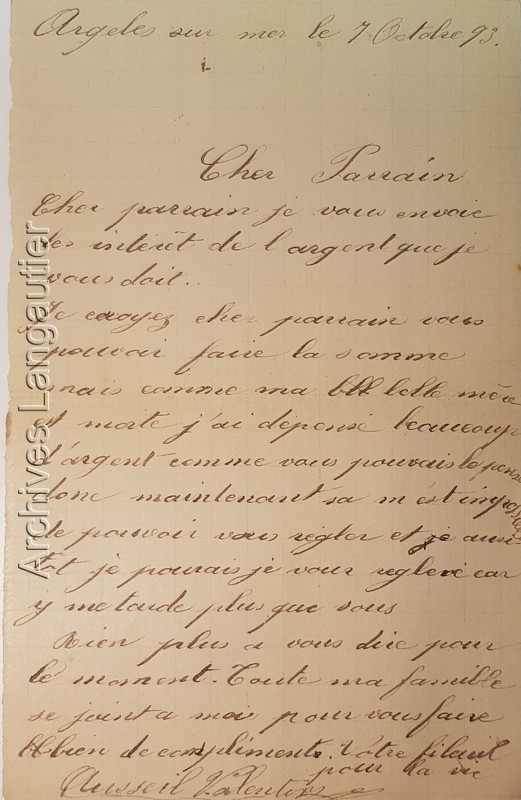 Argeles sur mer le 7 Octobre 93.
Cher Parrain
Cher parrain je vous envoie
les intérêt de l argent que je
vous doit..
Je croyez cher parrain vous
pouvoir faire la somme
mais comme ma bll belle mère
est morte j'ai dépensé beaucoup
d'argent comme vous pouvais le penser
donc maintenant sa m'est impossible
de pouvoir vous régler et je aussi
tot je pourais je vour regleré car
y me tarde plus que vous
Rien plus a vous dire pour
le moment. Toute ma famille
se joint a moi pour vous faire
bien de compliments. Votre filleul
pour la vie
Ausseil Valentin
Archives Langautier